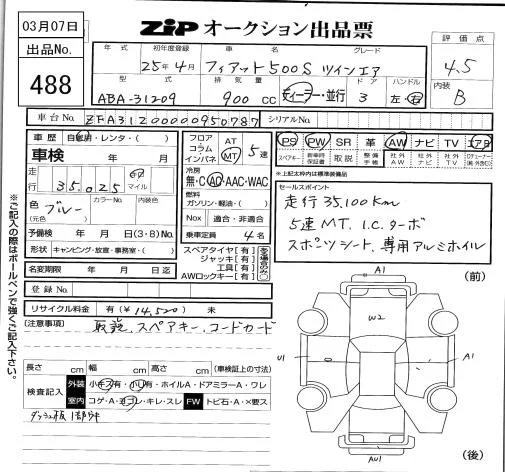 03月07日
ZiP オークション出品票
出品No.
488
年式 初年度登録 車名 グレード
25年4月 フィアット500S ツインエア
評価点
4.5
型式 排気量 ドア ハンドル
ABA-31209 900 CC ディーラー・並行 3 左・右
内装
B
車台No. ZFA3120000J950787 シリアルNo.
車歴 自家用・レンタ・( )
車検 年 月
走行 35,025 km マイル
色(元色) ブルー カラーNo. 内装色
予備検 年 月 日(3・8)No.
形状 キャンピング・放宣・事務室・( )
名変期限 年 月 日迄
登録No.
リサイクル料金 有(¥14,520) 無
フロア コラム インパネ AT MT 5速
冷房 無・C AC・AAC・WAC
燃料 ガソリン・軽油・( )
Nox 適合・非適合
乗車定員 4名
スペアタイヤ[有]
ジャッキ[有]
工具[有]
AWロックキー[有]
PS PW SR 革 AW ナビ TV エアB
スペアキー 新車時保証書 取説 整備手帳 社外AW 社外ナビ 社外TV
※上記太枠内は標準装備品
セールスポイント
走行35,100km
5速MT. I.C.ターボ
スポーツシート、専用アルミホイル
(注意事項) 取説、スペアキー、コードカード
長さ cm 幅 cm 高さ cm (車検証上の寸法)
検査記入 外装 小キズ有・小凹有・ホイルA・ドアミラーA・ワレ
室内 コゲ・A・ヨゴレ・キレ・スレ FW トビ石・A・×要ス
ダッシュ板1部外
(前)
A1
W2
U1 A1
AU1
(後)
※ご記入の際はボールペンで強くご記入下さい。